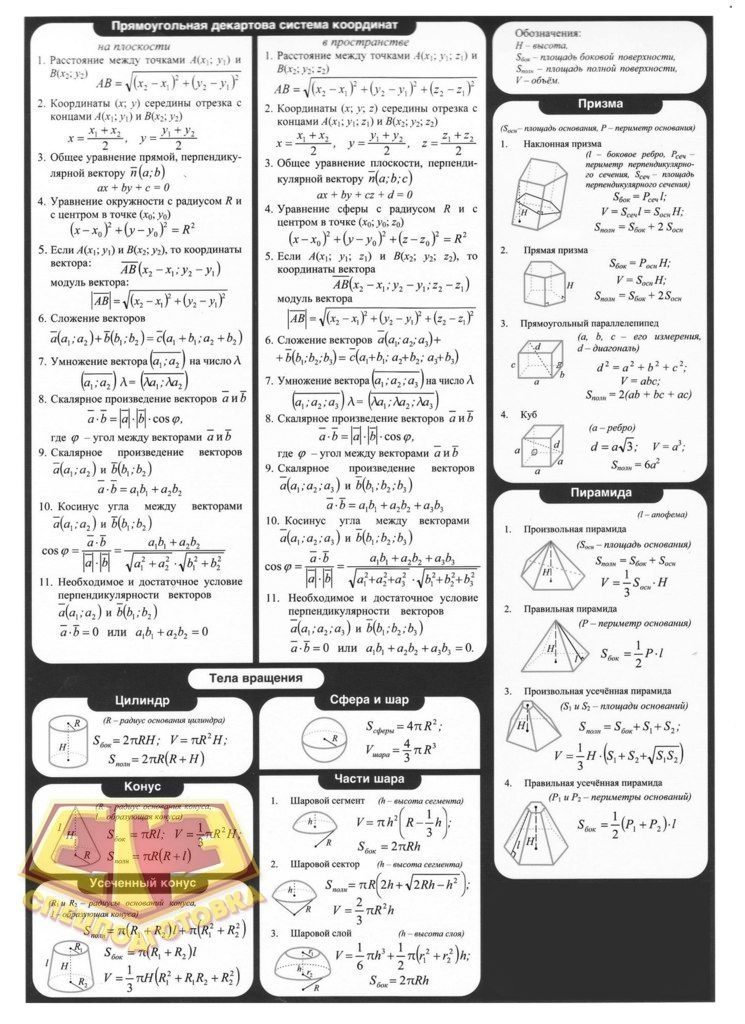 Прямоугольная декартова система координат
на плоскости
1. Расстояние между точками A(x₁; y₁) и
B(x₂; y₂)
AB = √((x₂ − x₁)² + (y₂ − y₁)²)
2. Координаты (x; y) середины отрезка с
концами A(x₁; y₁) и B(x₂; y₂)
x = (x₁ + x₂)/2 , y = (y₁ + y₂)/2
3. Общее уравнение прямой, перпендику-
лярной вектору n̅(a; b)
ax + by + c = 0
4. Уравнение окружности с радиусом R и
с центром в точке (x₀; y₀)
(x − x₀)² + (y − y₀)² = R²
5. Если A(x₁; y₁) и B(x₂; y₂), то координаты
вектора: A̅B̅(x₂ − x₁; y₂ − y₁)
модуль вектора:
|A̅B̅| = √((x₂ − x₁)² + (y₂ − y₁)²)
6. Сложение векторов
a̅(a₁; a₂) + b̅(b₁; b₂) = c̅(a₁ + b₁; a₂ + b₂)
7. Умножение вектора (a₁; a₂) на число λ
(a₁; a₂) λ = (λa₁; λa₂)
8. Скалярное произведение векторов a̅ и b̅
a̅ · b̅ = |a̅| · |b̅| · cos φ,
где φ – угол между векторами a̅ и b̅
9. Скалярное произведение векторов
a̅(a₁; a₂) и b̅(b₁; b₂)
a̅ · b̅ = a₁b₁ + a₂b₂
10. Косинус угла между векторами
a̅(a₁; a₂) и b̅(b₁; b₂)
cos φ = (a̅ · b̅)/(|a̅| · |b̅|) = (a₁b₁ + a₂b₂)/(√(a₁² + a₂²) · √(b₁² + b₂²))
11. Необходимое и достаточное условие
перпендикулярности векторов
a̅(a₁; a₂) и b̅(b₁; b₂)
a̅ · b̅ = 0 или a₁b₁ + a₂b₂ = 0
в пространстве
1. Расстояние между точками A(x₁; y₁; z₁) и
B(x₂; y₂; z₂)
AB = √((x₂ − x₁)² + (y₂ − y₁)² + (z₂ − z₁)²)
2. Координаты (x; y; z) середины отрезка с
концами A(x₁; y₁; z₁) и B(x₂; y₂; z₂)
x = (x₁ + x₂)/2 , y = (y₁ + y₂)/2 , z = (z₁ + z₂)/2
3. Общее уравнение плоскости, перпенди-
кулярной вектору n̅(a; b; c)
ax + by + cz + d = 0
4. Уравнение сферы с радиусом R и с
центром в точке (x₀; y₀; z₀)
(x − x₀)² + (y − y₀)² + (z − z₀)² = R²
5. Если A(x₁; y₁; z₁) и B(x₂; y₂; z₂), то
координаты вектора
A̅B̅(x₂ − x₁; y₂ − y₁; z₂ − z₁)
модуль вектора
|A̅B̅| = √((x₂ − x₁)² + (y₂ − y₁)² + (z₂ − z₁)²)
6. Сложение векторов a̅(a₁; a₂; a₃) +
+ b̅(b₁; b₂; b₃) = c̅(a₁+b₁; a₂+b₂; a₃+b₃)
7. Умножение вектора (a₁; a₂; a₃) на число λ
(a₁; a₂; a₃) λ = (λa₁; λa₂; λa₃)
8. Скалярное произведение векторов a̅ и b̅
a̅ · b̅ = |a̅| · |b̅| · cos φ,
где φ – угол между векторами a̅ и b̅
9. Скалярное произведение векторов
a̅(a₁; a₂; a₃) и b̅(b₁; b₂; b₃)
a̅ · b̅ = a₁b₁ + a₂b₂ + a₃b₃
10. Косинус угла между векторами
a̅(a₁; a₂; a₃) и b̅(b₁; b₂; b₃)
cos φ = (a̅ · b̅)/(|a̅| · |b̅|) = (a₁b₁ + a₂b₂ + a₃b₃)/(√(a₁² + a₂² + a₃²) · √(b₁² + b₂² + b₃²))
11. Необходимое и достаточное условие
перпендикулярности векторов
a̅(a₁; a₂; a₃) и b̅(b₁; b₂; b₃)
a̅ · b̅ = 0 или a₁b₁ + a₂b₂ + a₃b₃ = 0.
Обозначения:
H – высота,
Sбок – площадь боковой поверхности,
Sполн – площадь полной поверхности,
V – объём.
Призма
(Sосн – площадь основания, P – периметр основания)
1. Наклонная призма
(l – боковое ребро, Pсеч –
периметр перпендикулярно-
го сечения, Sсеч – площадь
перпендикулярного сечения)
Sбок = Pсеч l;
V = Sсеч l = Sосн H;
Sполн = Sбок + 2 Sосн
H
2. Прямая призма
Sбок = Pосн H;
V = Sосн H;
Sполн = Sбок + 2Sосн
H
3. Прямоугольный параллелепипед
(a, b, c – его измерения,
d – диагональ)
d² = a² + b² + c²;
V = abc;
Sполн = 2(ab + bc + ac)
d
c
b
a
4. Куб
(a – ребро)
d = a√3; V = a³;
Sполн = 6a²
d
a
a
a
Пирамида
(l – апофема)
1. Произвольная пирамида
(Sосн – площадь основания)
Sполн = Sбок + Sосн
V = 1/3 Sосн · H
H
2. Правильная пирамида
(P – периметр основания)
Sбок = 1/2 P · l
H
l
3. Произвольная усечённая пирамида
(S₁ и S₂ – площади оснований)
Sполн = Sбок + S₁ + S₂;
V = 1/3 H · (S₁ + S₂ + √(S₁S₂))
H
4. Правильная усечённая пирамида
(P₁ и P₂ – периметры оснований)
Sбок = 1/2 (P₁ + P₂) · l
H
Тела вращения
Цилиндр
(R – радиус основания цилиндра)
Sбок = 2πRH; V = πR²H;
Sполн = 2πR(R + H)
R
H
Конус
(R – радиус основания конуса,
l – образующая конуса)
Sбок = πRl; V = 1/3 πR²H;
Sполн = πR(R + l)
l
H
R
Усеченный конус
(R₁ и R₂ – радиусы оснований конуса,
l – образующая конуса)
Sполн = π(R₁ + R₂)l + π(R₁² + R₂²)
Sбок = π(R₁ + R₂)l
V = 1/3 πH(R₁² + R₁R₂ + R₂²)
R₁
l
H
R₂
ЕГЭ
СПЕЦПОДГОТОВКА
Сфера и шар
Sсферы = 4πR²;
Vшара = 4/3 πR³
R
Части шара
1. Шаровой сегмент (h – высота сегмента)
V = πh²(R − 1/3 h);
Sбок = 2πRh
h
R
2. Шаровой сектор (h – высота сегмента)
Sполн = πR(2h + √(2Rh − h²);
V = 2/3 πR²h
h
R
3. Шаровой слой (h – высота слоя)
V = 1/6 πh³ + 1/2 π(r₁² + r₂²)h;
Sбок = 2πRh
r₁
h
r₂
R